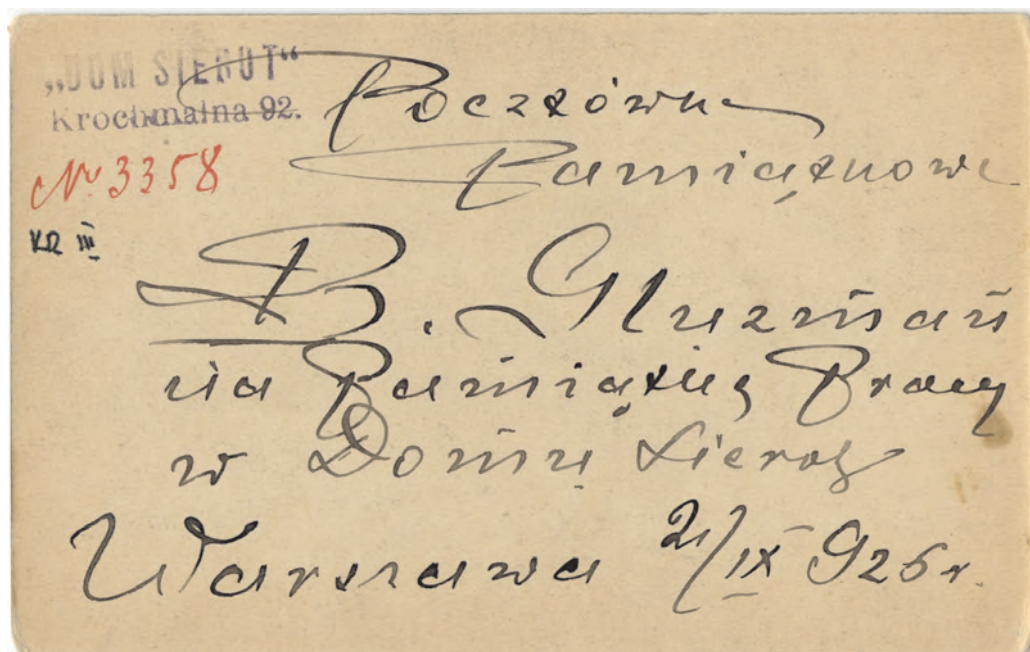 „DOM SIEROT“
Krochmalna 92.
Pocztówka
Pamiątkowa
№ 3358
KR III
B. Gluzman
na Pamiątkę Pracy
w Domu Sierot
Warszawa 21/IX 926 r.